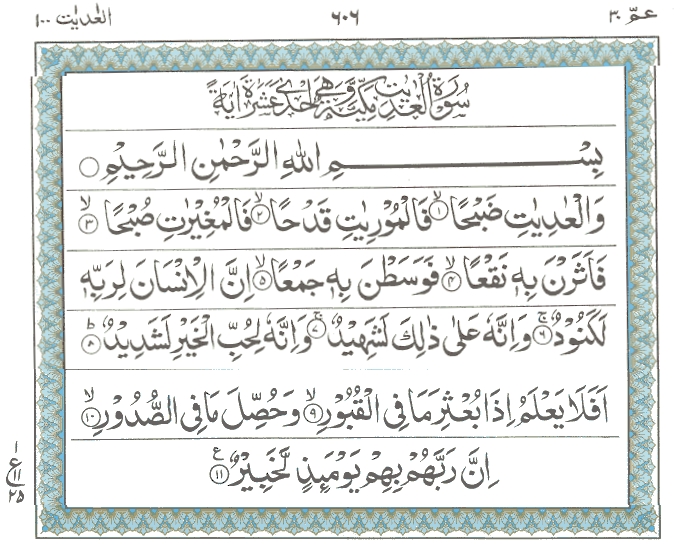 عمّ ۳۰ ۶۰۶ العٰدیٰت ۱۰۰
سُوْرَةُ الْعٰدِيٰتِ مَكِّيَّةٌ وَّهِيَ اِحْدٰى عَشَرَةَ اٰيَةً
بِسْمِ اللهِ الرَّحْمٰنِ الرَّحِيْمِ
وَالْعٰدِيٰتِ ضَبْحًا ۙ﴿۱﴾ فَالْمُوْرِيٰتِ قَدْحًا ۙ﴿۲﴾ فَالْمُغِيْرٰتِ صُبْحًا ۙ﴿۳﴾
فَاَثَرْنَ بِهٖ نَقْعًا ۙ﴿۴﴾ فَوَسَطْنَ بِهٖ جَمْعًا ۙ﴿۵﴾ اِنَّ الْاِنْسَانَ لِرَبِّهٖ
لَكَنُوْدٌ ۚ﴿۶﴾ وَاِنَّهٗ عَلٰى ذٰلِكَ لَشَهِيْدٌ ۚ﴿۷﴾ وَاِنَّهٗ لِحُبِّ الْخَيْرِ لَشَدِيْدٌ ؕ﴿۸﴾
اَفَلَا يَعْلَمُ اِذَا بُعْثِرَ مَا فِى الْقُبُوْرِ ۙ﴿۹﴾ وَحُصِّلَ مَا فِى الصُّدُوْرِ ۙ﴿۱۰﴾
اِنَّ رَبَّهُمْ بِهِمْ يَوْمَئِذٍ لَّخَبِيْرٌ ﴿۱۱﴾ ع
۱
ع
۱۱
۲۵